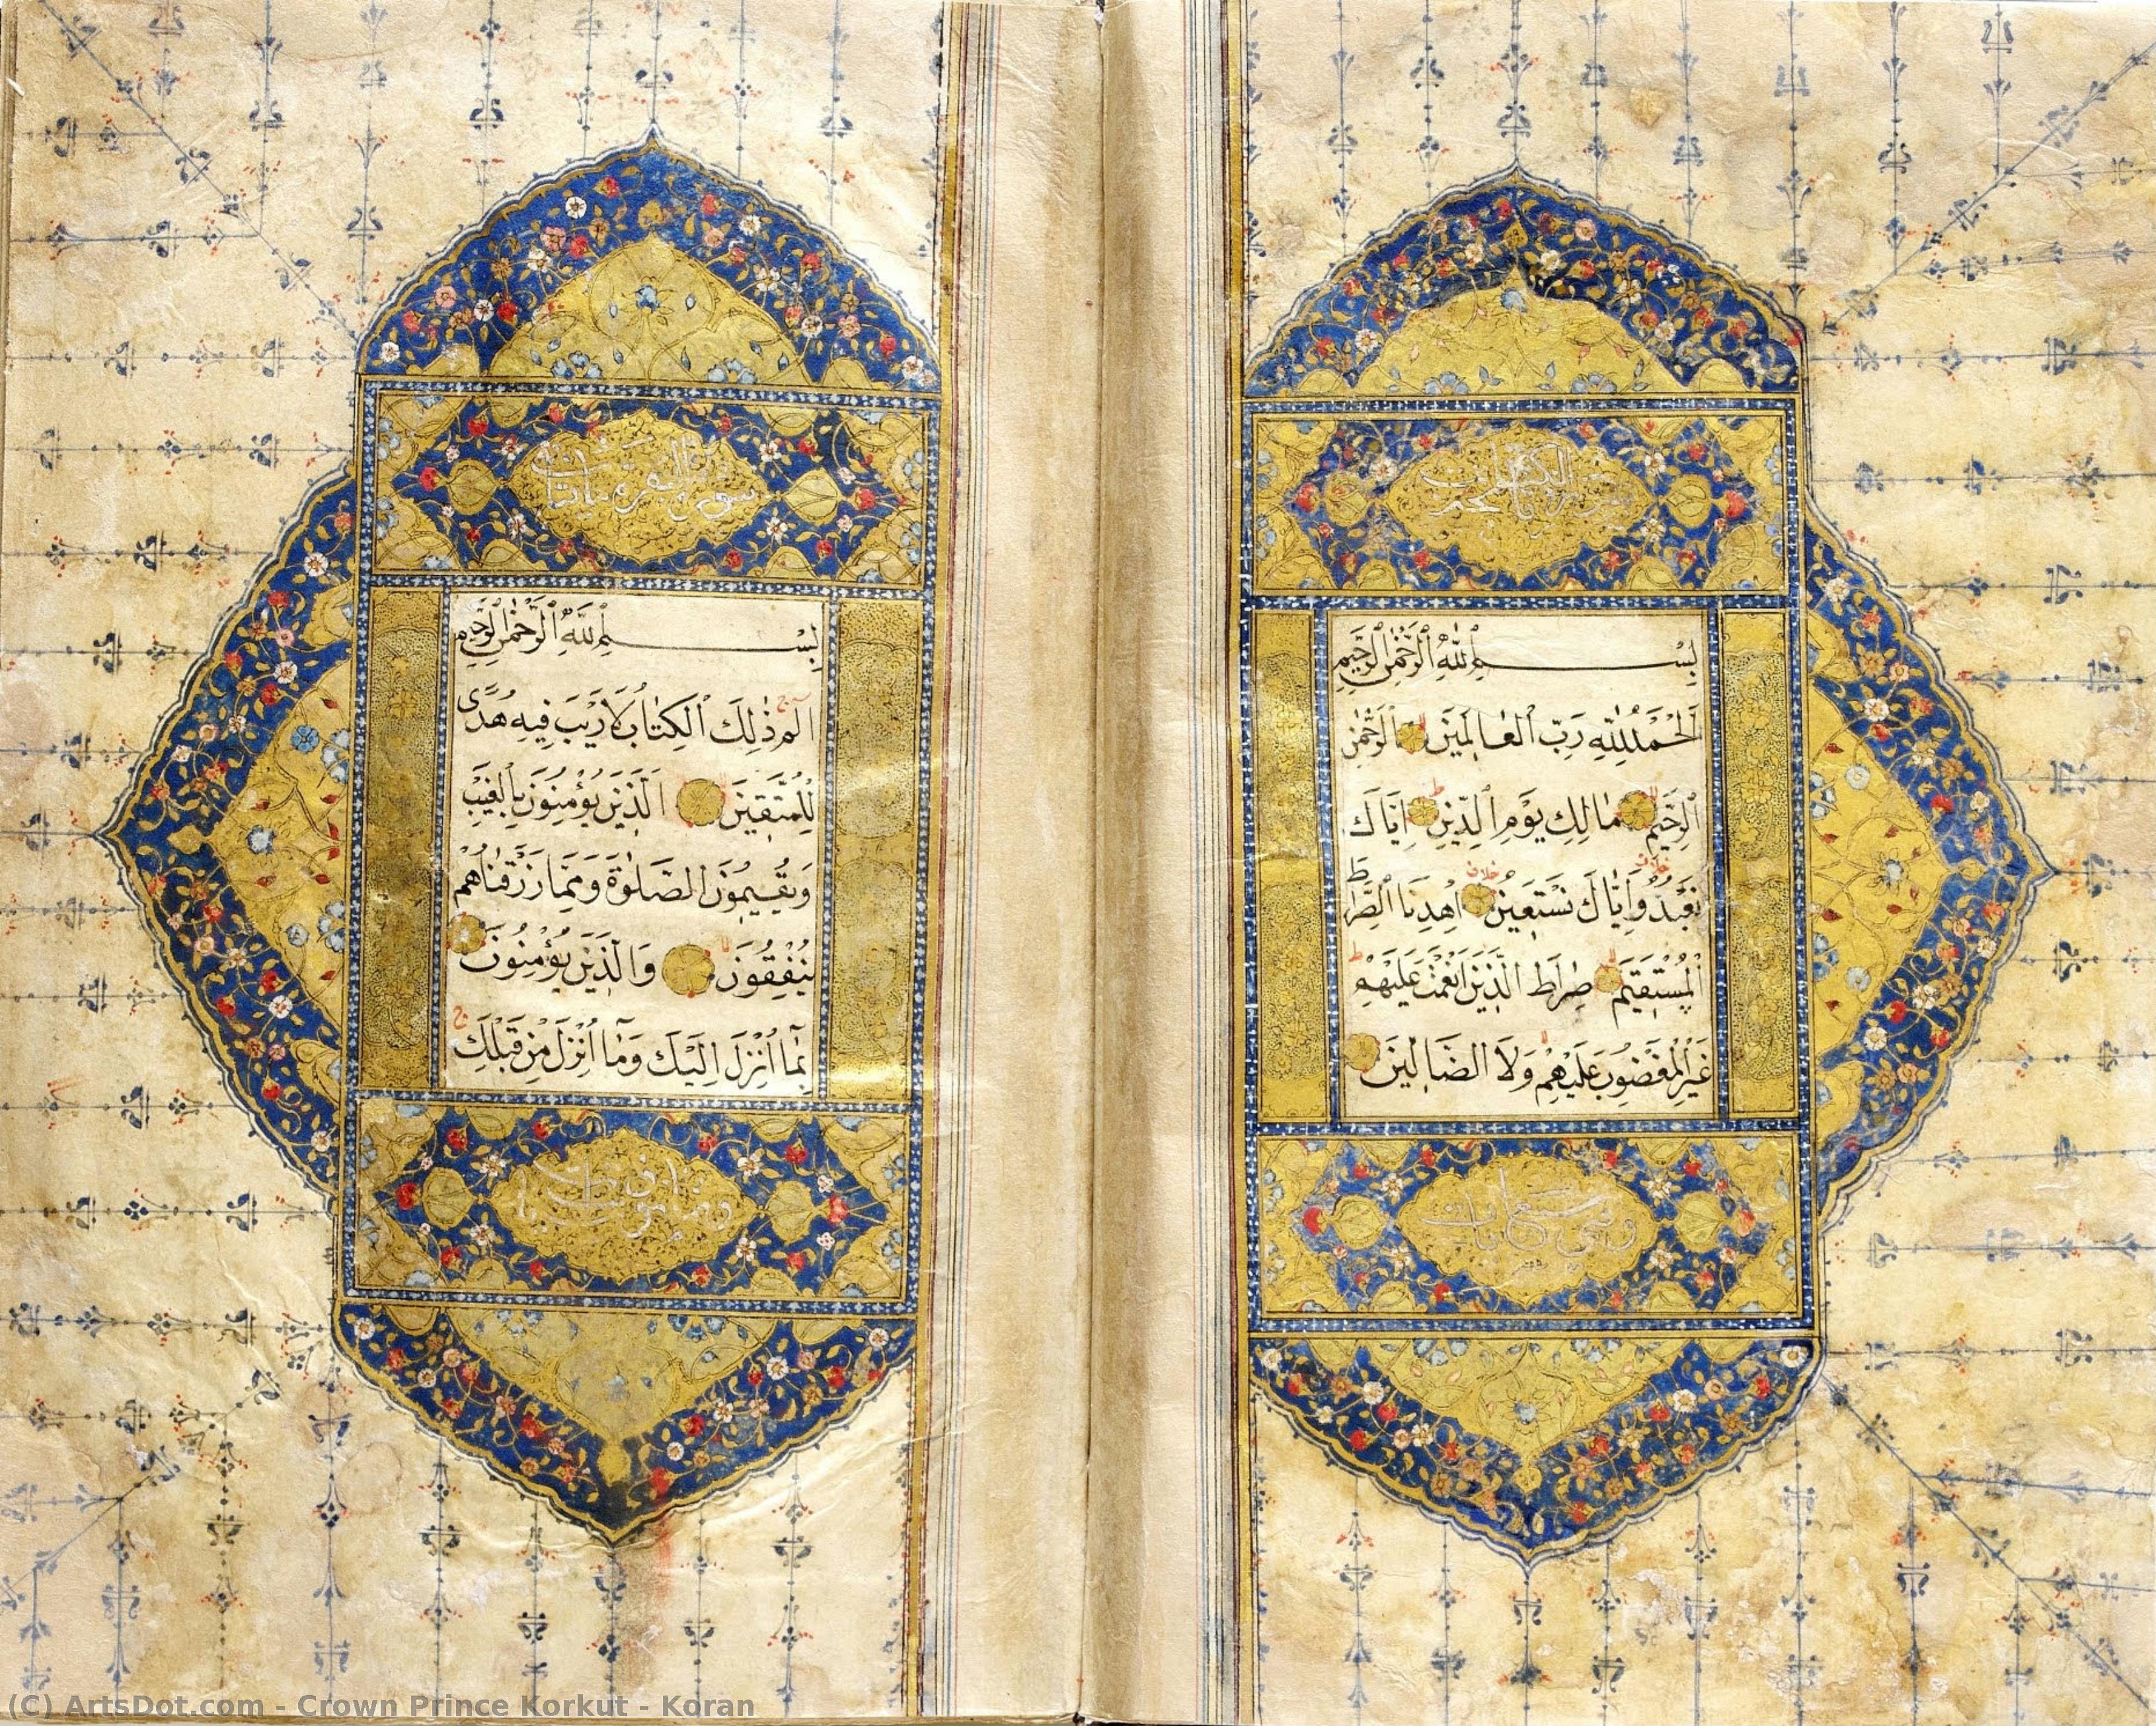 بِسْمِ اللهِ الرَّحْمٰنِ الرَّحِيمِ
اَلْحَمْدُ لِلّٰهِ رَبِّ الْعَالَمِينَ اَلرَّحْمٰنِ
الرَّحِيمِ مَالِكِ يَوْمِ الدِّينِ اِيَّاكَ
نَعْبُدُ وَاِيَّاكَ نَسْتَعِينُ اِهْدِنَا الصِّرَاطَ
الْمُسْتَقِيمَ صِرَاطَ الَّذِينَ اَنْعَمْتَ عَلَيْهِمْ
غَيْرِ الْمَغْضُوبِ عَلَيْهِمْ وَلَا الضَّالِّينَ
سورة البقرة مائتان
بِسْمِ اللهِ الرَّحْمٰنِ الرَّحِيمِ
الم ذٰلِكَ الْكِتَابُ لَا رَيْبَ فِيهِ هُدًى
لِلْمُتَّقِينَ اَلَّذِينَ يُؤْمِنُونَ بِالْغَيْبِ
وَيُقِيمُونَ الصَّلٰوةَ وَمِمَّا رَزَقْنَاهُمْ
يُنْفِقُونَ وَالَّذِينَ يُؤْمِنُونَ
بِمَا اُنْزِلَ اِلَيْكَ وَمَا اُنْزِلَ مِنْ قَبْلِكَ
(C) ArtsDot.com - Crown Prince Korkut - Koran